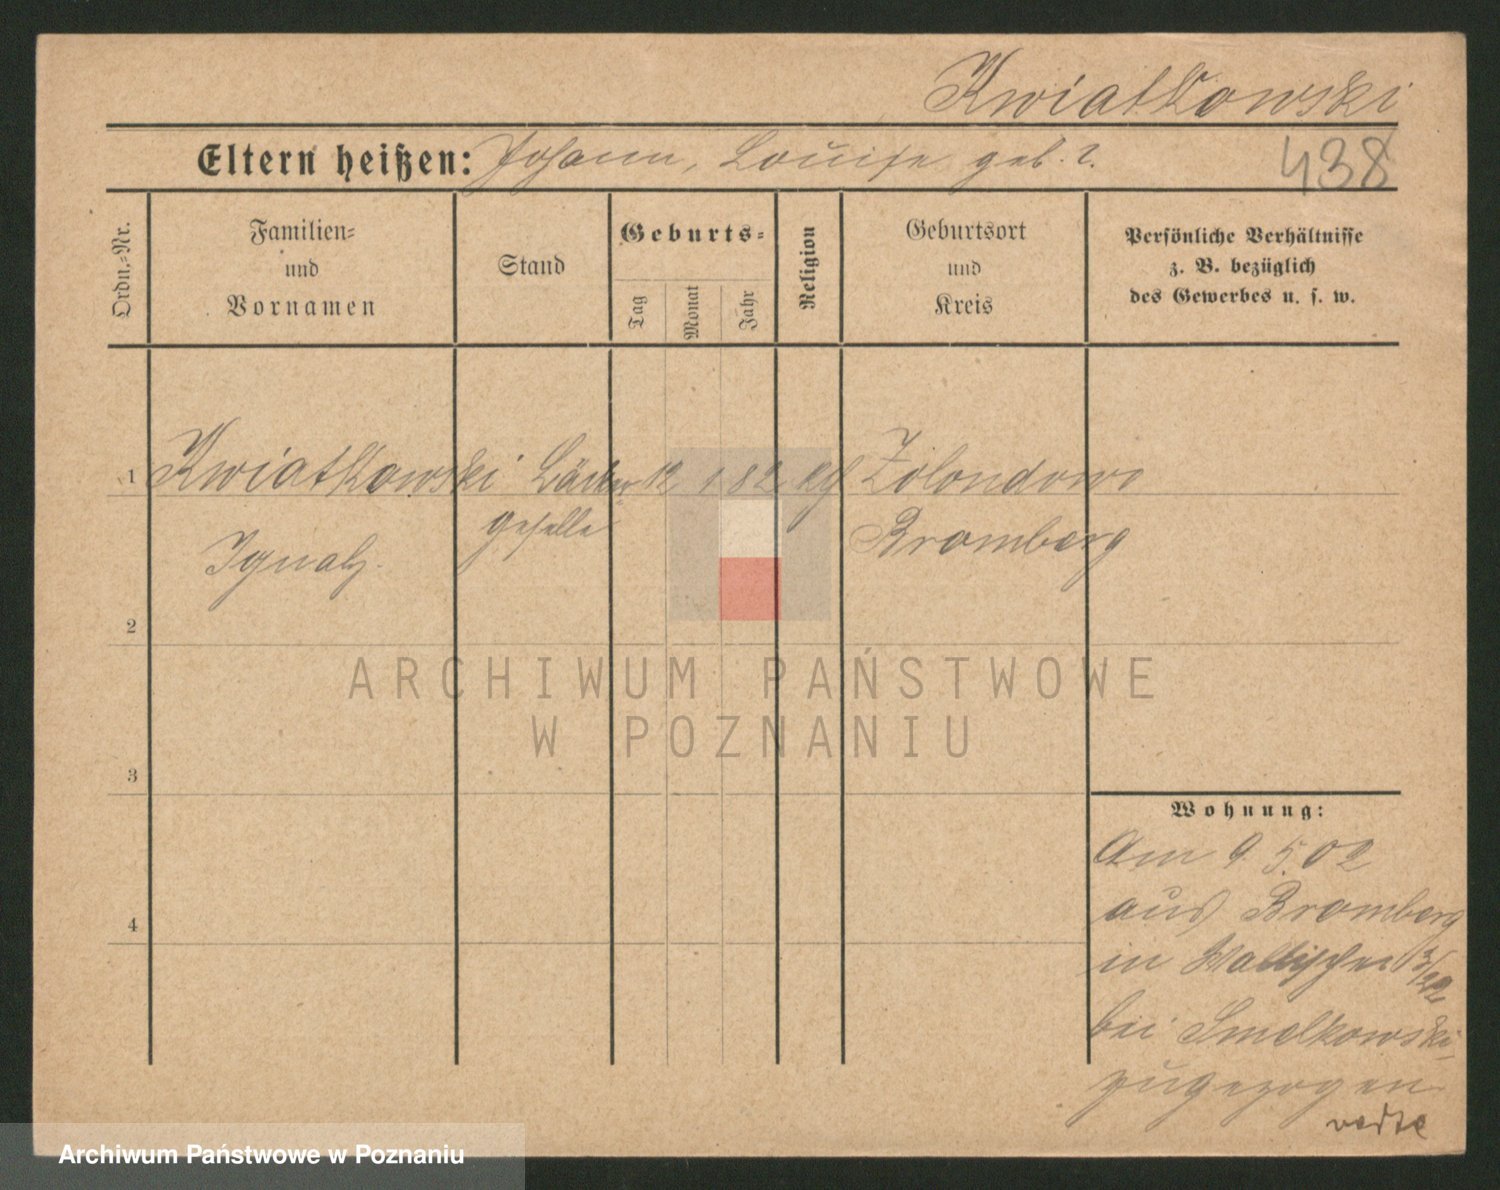 Kwiatkowski
Eltern heißen: Johann, Louise geb. ?.
438
Ordn.-Nr.
Familien-
und
Vornamen
Stand
Geburts-
Tag
Monat
Jahr
Religion
Geburtsort
und
Kreis
Persönliche Verhältnisse
z. B. bezüglich
des Gewerbes u. s. w.
1 Kwiatkowski Bäcker- 12 1 82 Zolondowo
Ignatz. geselle Bromberg
2
3
4
Wohnung:
Am 9 5. 02
aus Bromberg
in Wallischei
bei Smelkowski
zugezogen
verte
ARCHIWUM PAŃSTWOWE
W POZNANIU
Archiwum Państwowe w Poznaniu